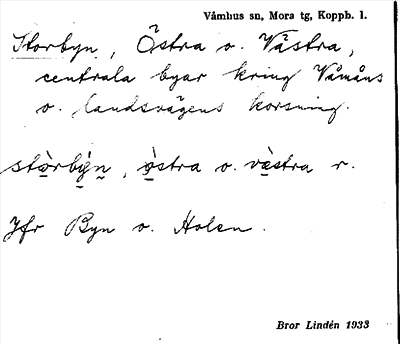 Våmhus sn, Mora tg, Koppb. l.
Storbyn, Östra o. Västra,
centrala byar kring Våmåns
o. landsvägens korsning.
stòrbýn, òstra o. västra r.
Jfr Byn o. Holen.
Bror Lindén 1933